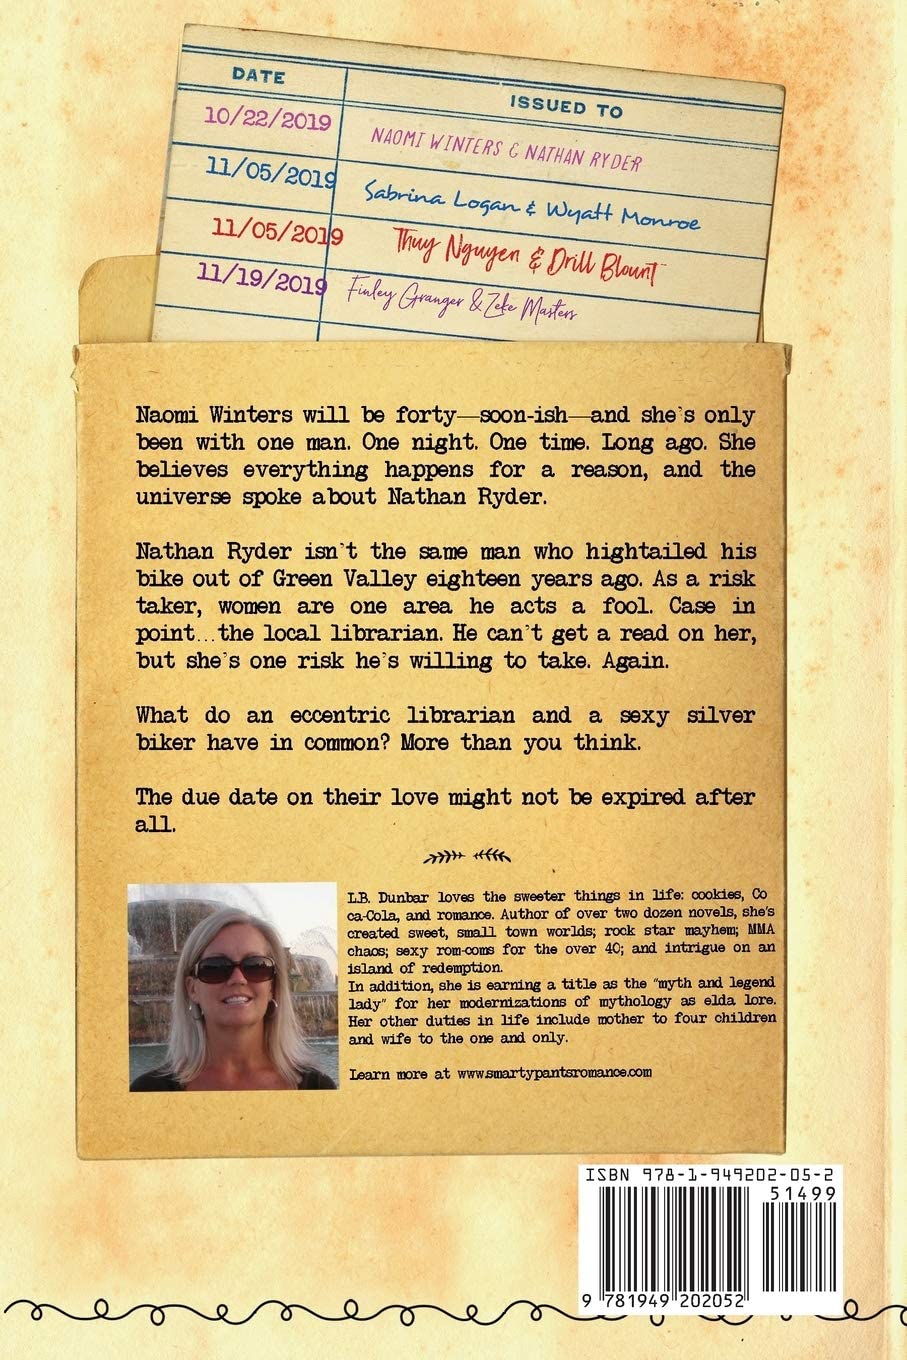 DATE
ISSUED TO
10/22/2019 NAOMI WINTERS & NATHAN RYDER
11/05/2019 Sabrina Logan & Wyatt Monroe
11/05/2019 Thuy Nguyen & Drill Blount
11/19/2019 Finley Granger & Zeke Masters
Naomi Winters will be forty—soon-ish—and she's only
been with one man. One night. One time. Long ago. She
believes everything happens for a reason, and the
universe spoke about Nathan Ryder.
Nathan Ryder isn't the same man who hightailed his
bike out of Green Valley eighteen years ago. As a risk
taker, women are one area he acts a fool. Case in
point...the local librarian. He can't get a read on her,
but she's one risk he's willing to take. Again.
What do an eccentric librarian and a sexy silver
biker have in common? More than you think.
The due date on their love might not be expired after
all.
L.B. Dunbar loves the sweeter things in life: cookies, Co
ca-Cola, and romance. Author of over two dozen novels, she's
created sweet, small town worlds; rock star mayhem; MMA
chaos; sexy rom-coms for the over 40; and intrigue on an
island of redemption.
In addition, she is earning a title as the "myth and legend
lady" for her modernizations of mythology as elda lore.
Her other duties in life include mother to four children
and wife to the one and only.
Learn more at www.smartypantsromance.com
ISBN 978-1-949202-05-2
51499
9 781949 202052